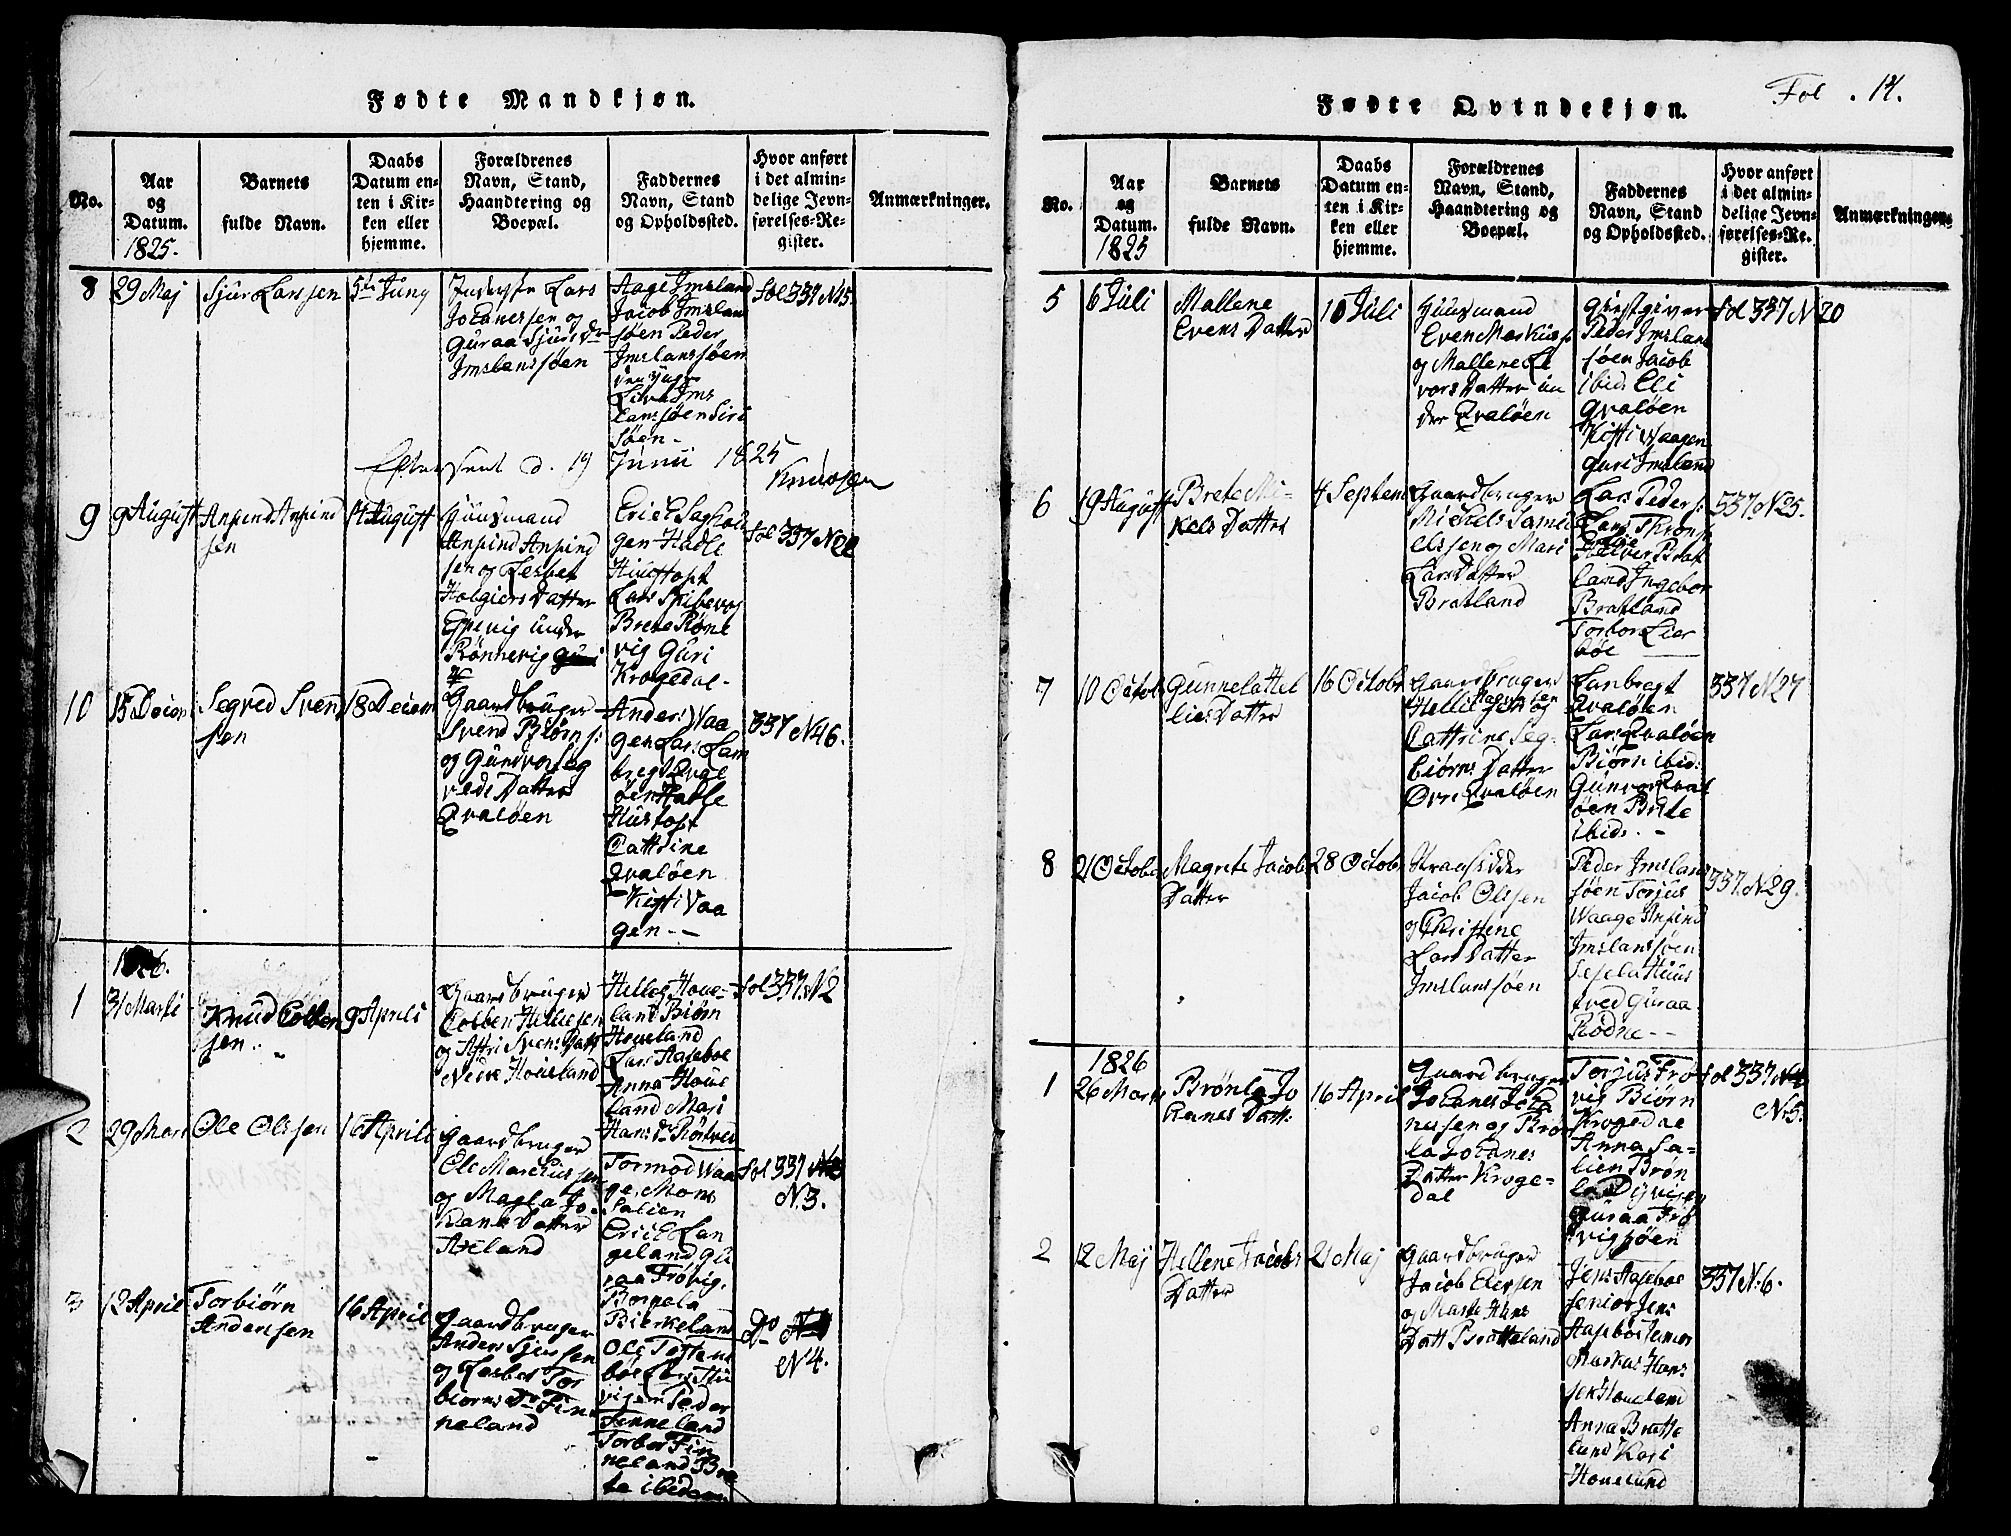 Fødte Mandkjøn.
No.
Aar
og
Datum.
1825.
Barnets
fulde Navn.
Daabs
Datum en-
ten i Kir-
ken eller
hjemme.
Forældrenes
Navn, Stand,
Haandtering og
Boepæl.
Faddernes
Navn, Stand
og Opholdssted.
Hvor anført
i det almin-
delige Jevn-
førelses-Re-
gister.
Anmærkninger.
8
29 Maj
Sjur Larssen
5te Juny
Lars
Johanessen og
Guraa Sjurs Dr
Imslanssøen
Aage Imsland
Jacob Imslan
søen Peder
Imslanssøen
den yngre
Ims
lanssøen Siri
søen -
fol 337 N 15
Efter seet d. 19 Junii 1825
Knudsen
9
9 August
Anfind Anfind
sen
14 August
Huusmand
Anfind Anfind
sen og Lesbet
Holgiers Datter
Espevig under
Rønnevig
Erick
gen Hadle
Hustoft
Lars
Brete Røne
vig Guri
Krogedal -
fol 337 N 21
10
15 Decem
Segved Svend
sen
18 Decem
Gaardbruger
Svend Biørns:
og Gunvor Seg
veds Datter
Qvaløen
Anders Vaa
gen Lars Lam
bregt Qvale
øen Hadle
Hustoft
Cattrine
Qvaløen
Kisti Vaa
gen --
337 N 46.
1826.
1
31 Marti
Knud Colben
sen..
9 Aprili
Gaardbruger
Colben Hellessen
og Affri Svens Datt
Nedre Houeland
Helleg Houe-
land Biørn
Houeland
Lars Haseboe
Anna Houe
land Mari
Hans Dr Røltved
fol 337 N 2
2
29 Mars
Ole Olssen
16 Aprili
Gaardbruger
Ole Marcussen
og Magla Jo-
hans Datter
Axeland
Tormod Waa
ge, Mons
Salien
Erick Lan
geland Gu
raa Frøvig.
Borgela
Bierkeland
fol 337
N 3.
3
12 April
Torbiørn
Andersen
16 April
Gaardbruger
Anders Sjurssen
og Lesbet Tor
biorns Dr Fin
neland
Ole Tofteens
bøe Lars
vigen Peder
Finneland
Torbor Fin
neland Bre
te ibidem
Do
N 4.
Fol. 14.
Fødte Qvindekjøn.
No.
Aar
og
Datum.
1825
Barnets
fulde Navn.
Daabs
Datum en-
ten i Kir-
ken eller
hjemme.
Forældrenes
Navn, Stand,
Haandtering og
Boepæl.
Faddernes
Navn, Stand
og Opholdssted.
Hvor anført
i det almin-
delige Jevn-
førelses-Re-
gister.
Anmærkninger.
5
6 Juli
Mallene
Evens Datter
10 Juli
Huusmand
Even Markuss
og Mallene El
vors Datter un
der Qvaløen
Giestgiver
Peder Imslan
søen Jacob
ibid. Eli
Qvaløen
Kisti Waagen
Guri Imsland
fol 337 N 20
6
19 August
Brete Mi-
kels Datter
4 Septem
Gaardbruger
Mickels Samu
elssen og Mari
Lars Datter
Bratland
Lars Peders:
Lars Throns
Halver Brat
land Ingebor
Bratland
Torbor Lier
bøe
337 N 25.
7
10 Octob
Gunnela Hel
lies Datter
16 Octobr
Gaardbruger
Hellie
Cattrine Seg-
biørns Datter
Øvre Qvaløen
Lambregt
Qvaløen
Lars Qvaløen
Biørn ibid:
Gunvor Qval
øen Brite
ibid. -
337 N 27
8
21 Octobe
Magrete Jacobs
Datter
28 Octobr
Strandsidder
Jacob Olssen
og Christene
Lars Datter
Imslanssøen
Peder Imslan
søen Torjus
Waage Anfind
Imslanssøen
Sesela Huus
tved Guraa
Rødne --
337. N 29.
1826
1
26 Mars
Brønla Jo
hanes Datt:
16 April
Gaardbruger
Johanes Joha
nessen og Brøn
la Johanes
Datter Kroge-
dal
Torjus Frø
vig Biørn
Krogedal
Anna Sa-
lien Brøn
la Dyvigen
Guraa Frø
vigsøen
fol 337
N 5.
2
12 Maj
Hellene Jacobs
Datter
21 Maj
Gaardbruger
Jacob Elersen
og Marte Hans
Datt Bratteland
Jens Haseboe
senior Jens
Hasebøe Junior
Markus Hans
sen Houeland
Anna Bratte
land Kari
Houeland
337 N. 6.